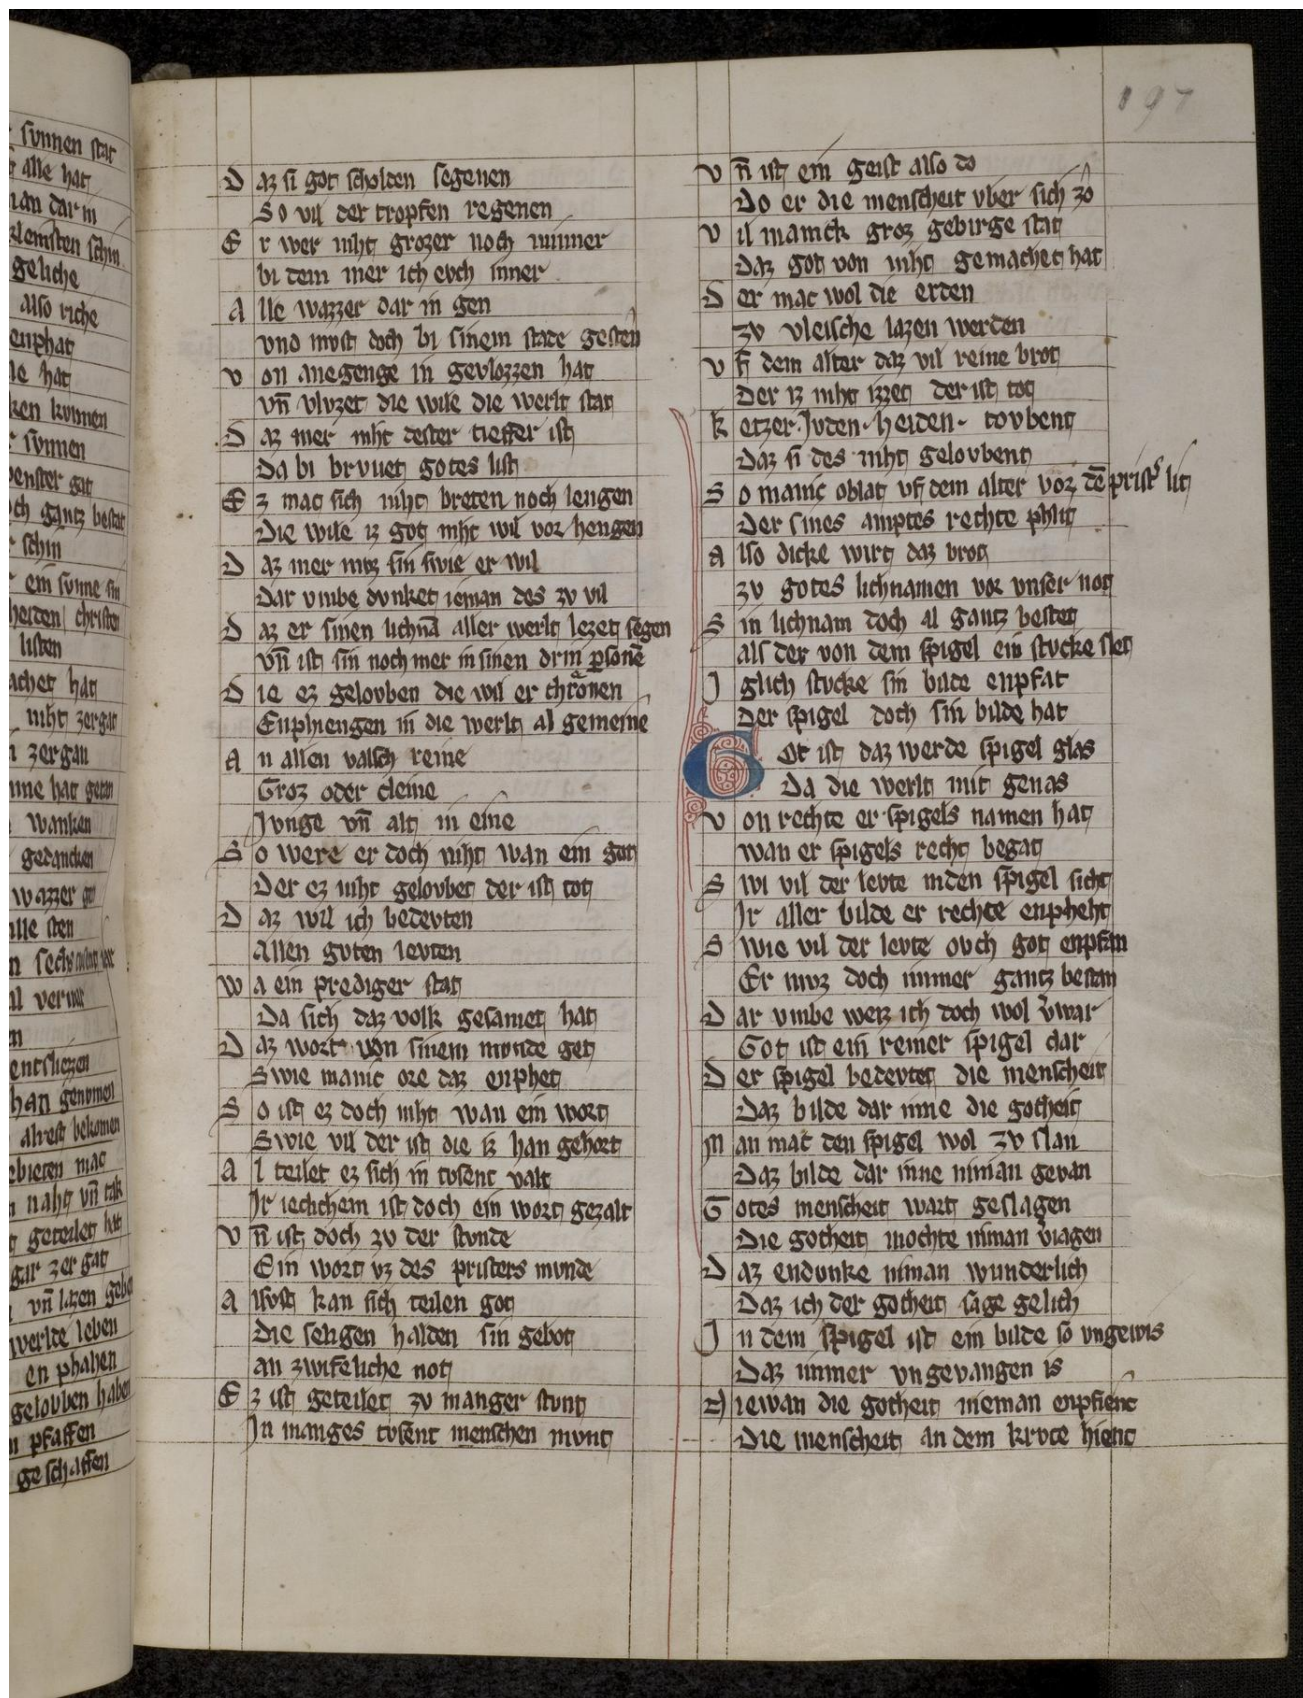 sunnen stat
alle hat
man dar in
clemsten schin
geliche
also riche
enphat
le hat
ken kunnen
sunnen
venster gat
och gantz bestat
schin
ein sunne sin
heiden christen
listen
achet hat
niht zergat
zergan
unne hat getan
wanken
gedancken
wazzer
alle sten
n
al vermar
n
entsliezen
han genumen
alrest bekomen
ebieten mac
naht vn̄ tak
geteilet hat
gar zer gat
vn̄ lazen geben
werlde leben
en phahen
gelouben haben
n pfaffen
geschaffen
197
D az si got scholden segenen
So vil der tropfen regenen
E r wer niht grozer noch minner
bi dem mer ich evch inner
A lle wazzer dar in gen
vnd mvst doch bi sinem stade gesten
v on anegenge in gevlozzen hat
vn̄ vlvzet die wile die werlt stat
D az mer niht dester tieffer ist
Da bi brvuet gotes list
E z mac sich niht breten noch lengen
Die wile iz got niht wil vor hengen
D az mer mvz sin swie er wil
Dar vmbe dvnket ieman des zv vil
D az er sinen lichnā aller werlt lezet segen
vn̄ ist sin noch mer in sinen drin ꝑsonē
D ie ez gelovben die wil er chrônen
Enphiengen in die werlt al gemeine
A n allen valsch reine
Groz oder cleine
Jvnge vn̄ alt in eine
S o were er doch niht wan ein got
Der ez niht gelovbet der ist tot
D az wil ich bedevten
allen gvten levten
w a ein prediger stat
Da sich daz volk gesamet hat
D az wort von sinem mvnde get
Swie manic ore daz enphet
S o ist ez doch niht wan ein wort
Swie vil der ist die iz han gehort
A l teilet ez sich in tvsent valt
Jr iechchein ist doch ein wort gezalt
V n̄ ist doch zv der stvnde
Ein wort vz des pristers mvnde
A lsvst kan sich teilen got
die seligen halden sin gebot
an zwifeliche not
E z ist geteilet zv manger stvnt
Jn manges tvsent menschen mvnt
v n̄ ist ein geist also do
Do er die menscheit vber sich zô
v il manick groz gebirge stat
daz got von niht gemachet hat
D er mac wol die erden
zv vleische lazen werden
v f dem alter daz vil reine brot
Der iz niht izzet der ist tot
k etzer. Jvden. heiden. tovbent
daz si des niht gelovbent
S o manic oblat vf dem alter vor dē pristˢ lit
Der sines amptes rechte phlit
A lso dicke wirt daz brot
zv gotes lichnamen vor vnser not
S in lichnam doch al gantz bestet
als der von dem spigel ein stvcke slet
J glich stvcke sin bilde enpfat
der spigel doch sin bilde hat
G Ot ist daz werde spigel glas
Da die werlt mit genas
V on rechte er spigels namen hat
wan er spigels recht begat
S wi vil der levte in den spigel sicht
Jr aller bilde er rechte enpheht
S wie vil der levte ovch got enpfan
Er mvz doch immer gantz bestan
D ar vmbe weiz ich doch wol v̄war
Got ist ein reiner spigel clar
D er spigel bedevtet die menscheit
Daz bilde dar inne die gotheit
M an mac den spigel wol zv slan
Daz bilde dar inne niman gevan
G otes menscheit wart geslagen
die gotheit mochte niman v̄iagen
D az endvnke niman wunderlich
Daz ich der gotheit sage gelich
J n dem spigel ist ein bilde so vngewis
Daz immer vngevangen is
N iewan die gotheit nieman enpfienc
Die menscheit an dem krvce hienc